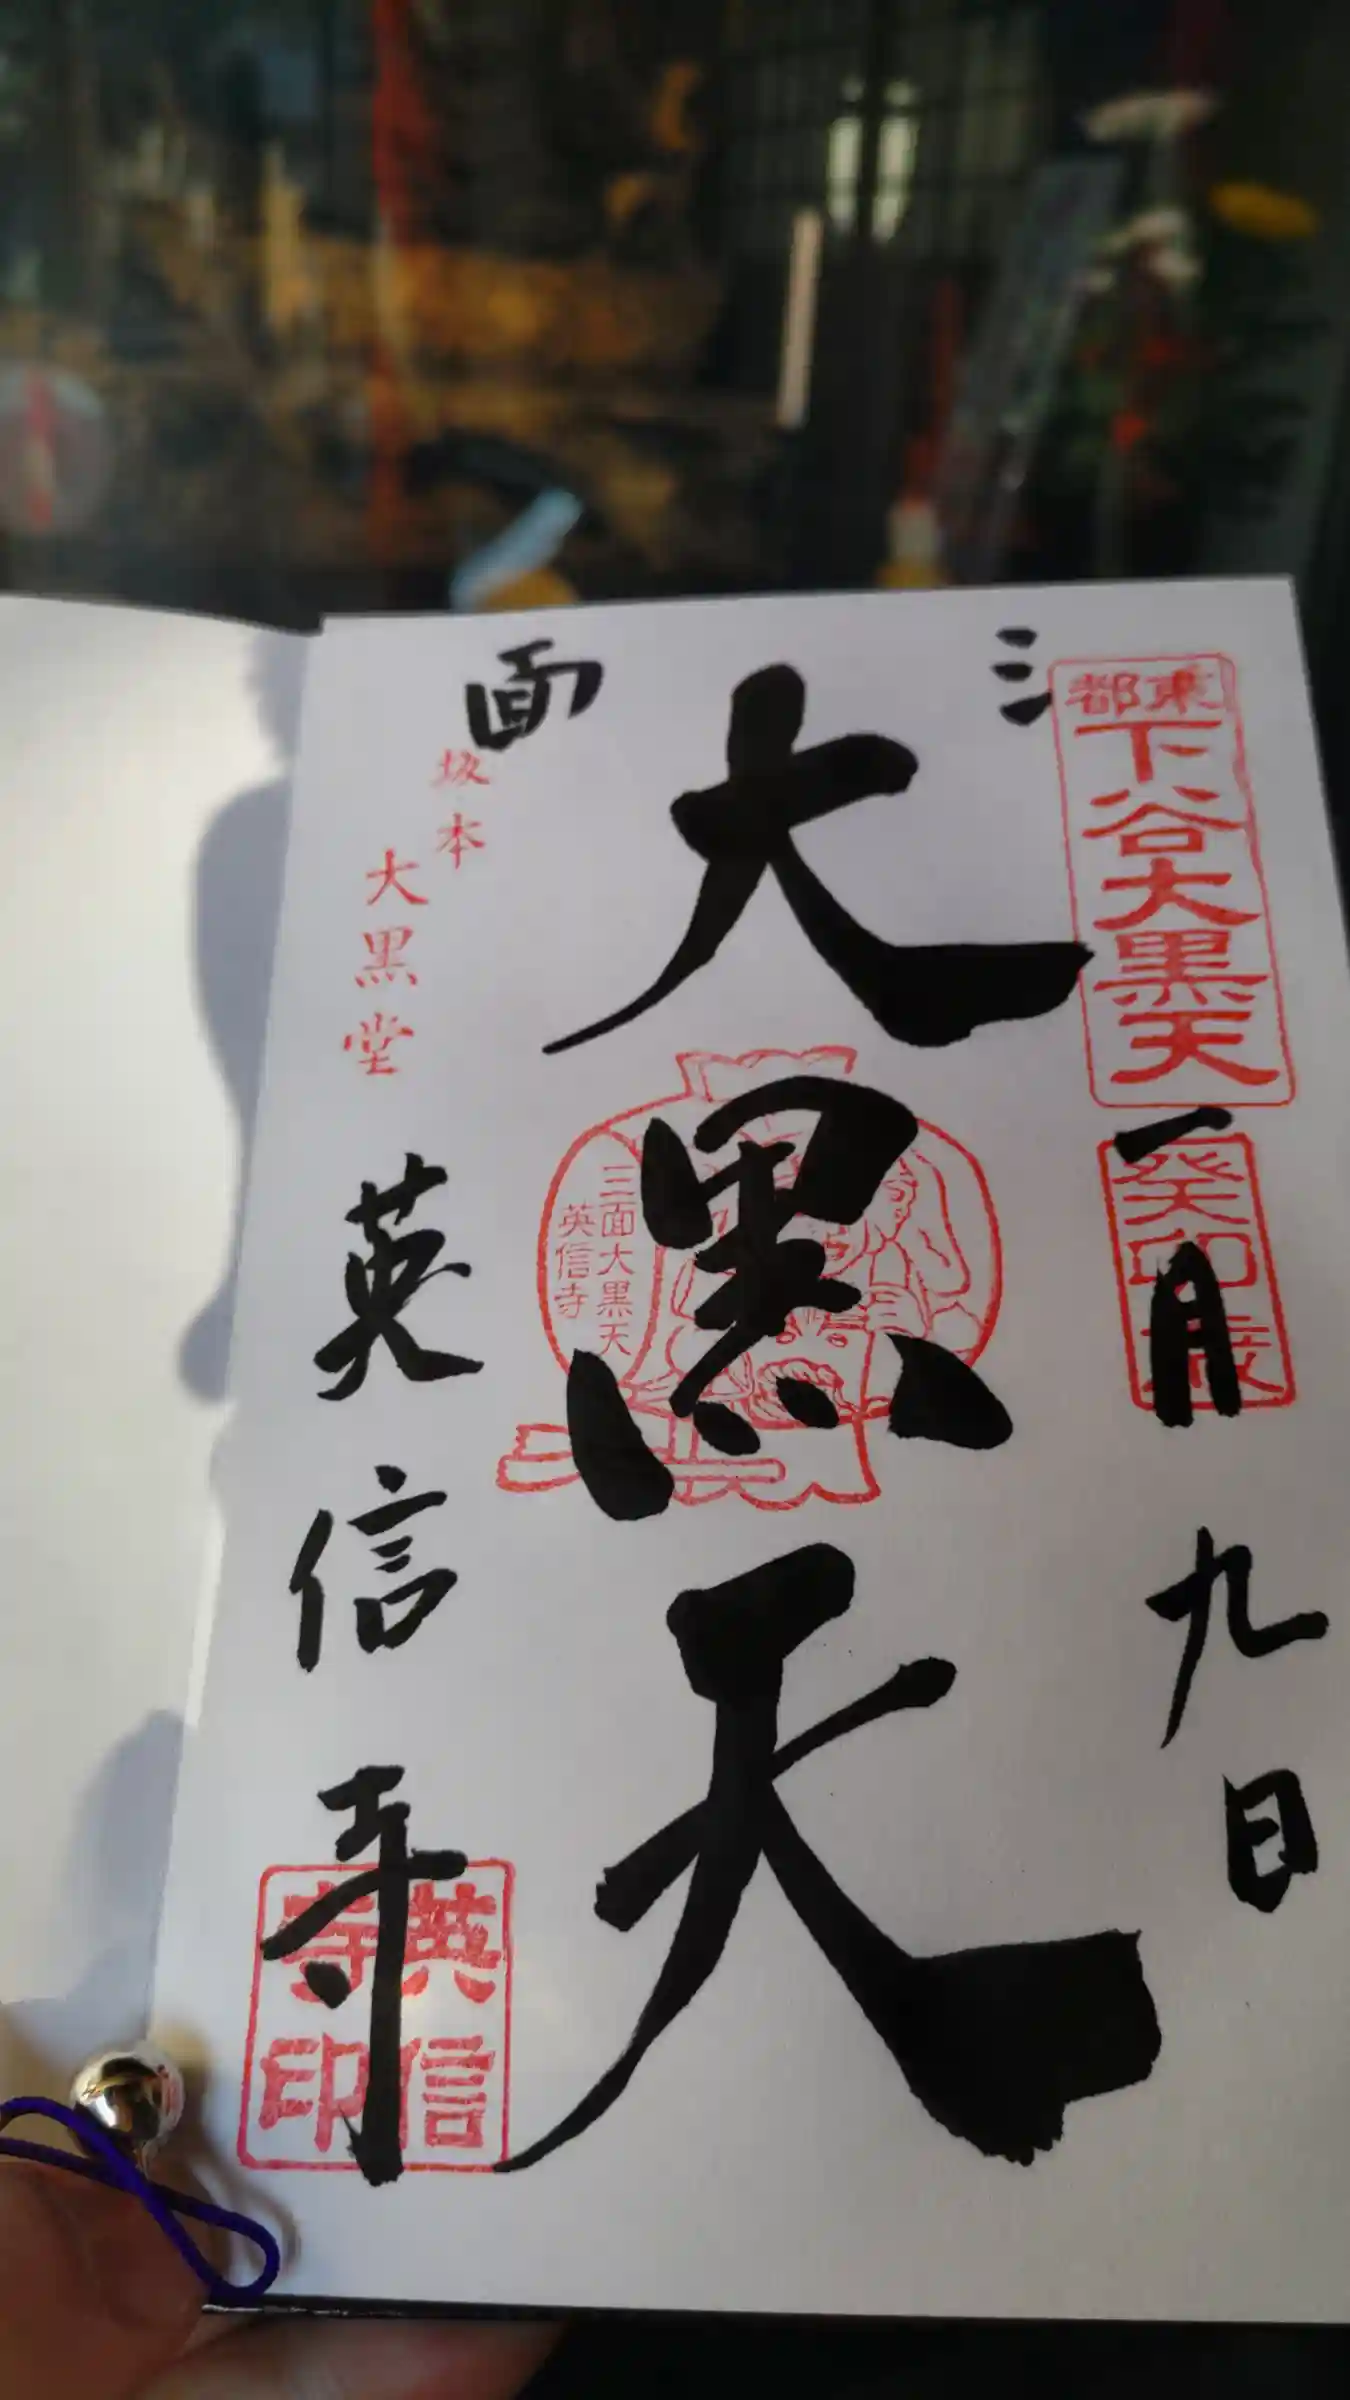 三
東都
下谷大黒天
癸卯歳
一月九日
大黒天
三面大黒天
英信寺
面
坂本
大黒堂
英信寺
英信寺印